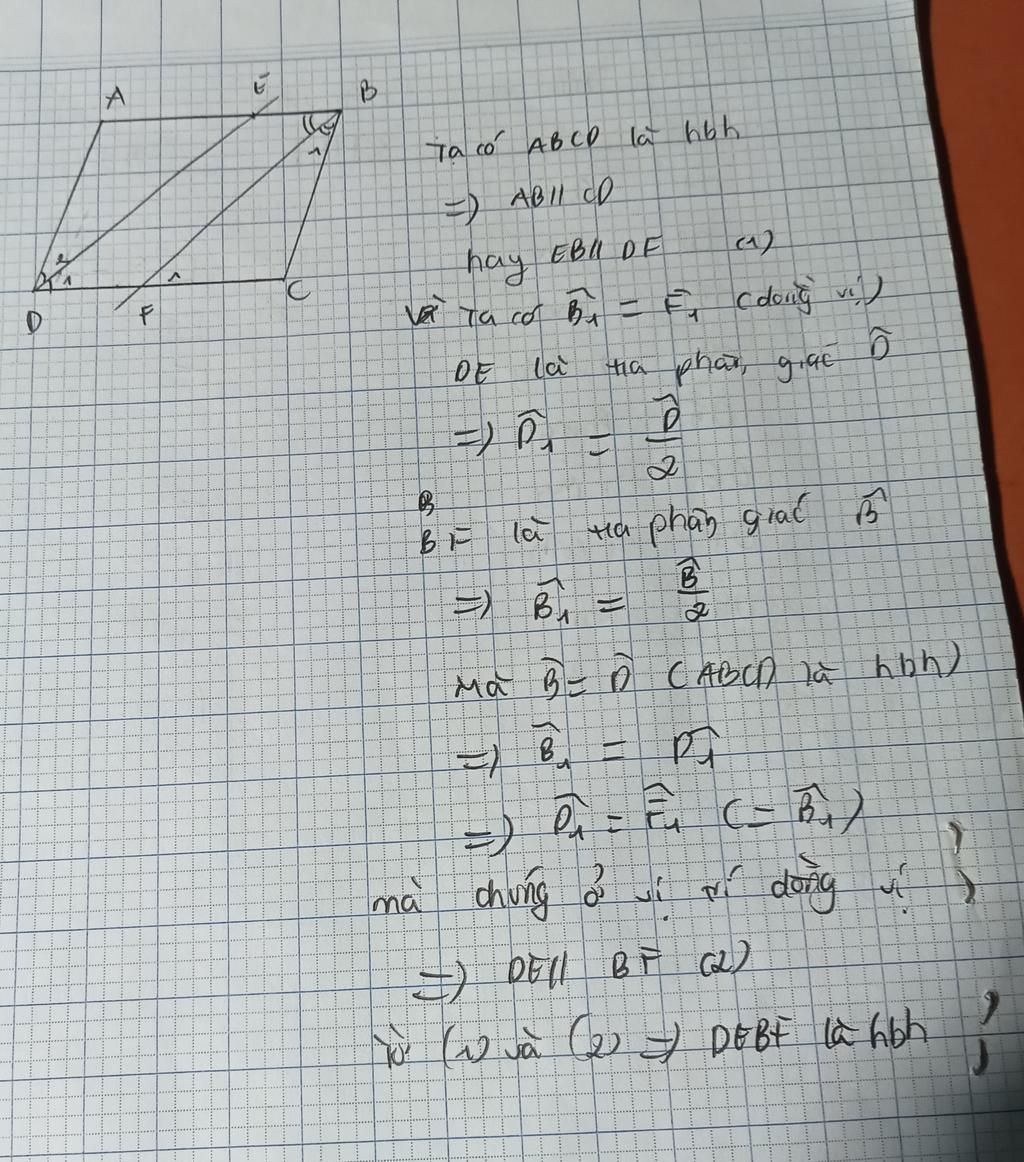 A E B
2 1 1 1
D F C
Ta có ABCD là hbh
=) AB // CD
hay EB // DF (1)
Ta có B̂1 = F̂1 (đồng vị)
DE là tia phân giác D̂
=) D̂1 = D̂/2
B
BF là tia phân giác B̂
=) B̂1 = B̂/2
Mà B̂ = D̂ (ABCD là hbh)
=) B̂1 = D̂1
=) D̂1 = F̂1 (= B̂1)
mà chúng ở vị trí đồng vị
=) DE // BF (2)
Từ (1) và (2) =) DEBF là hbh